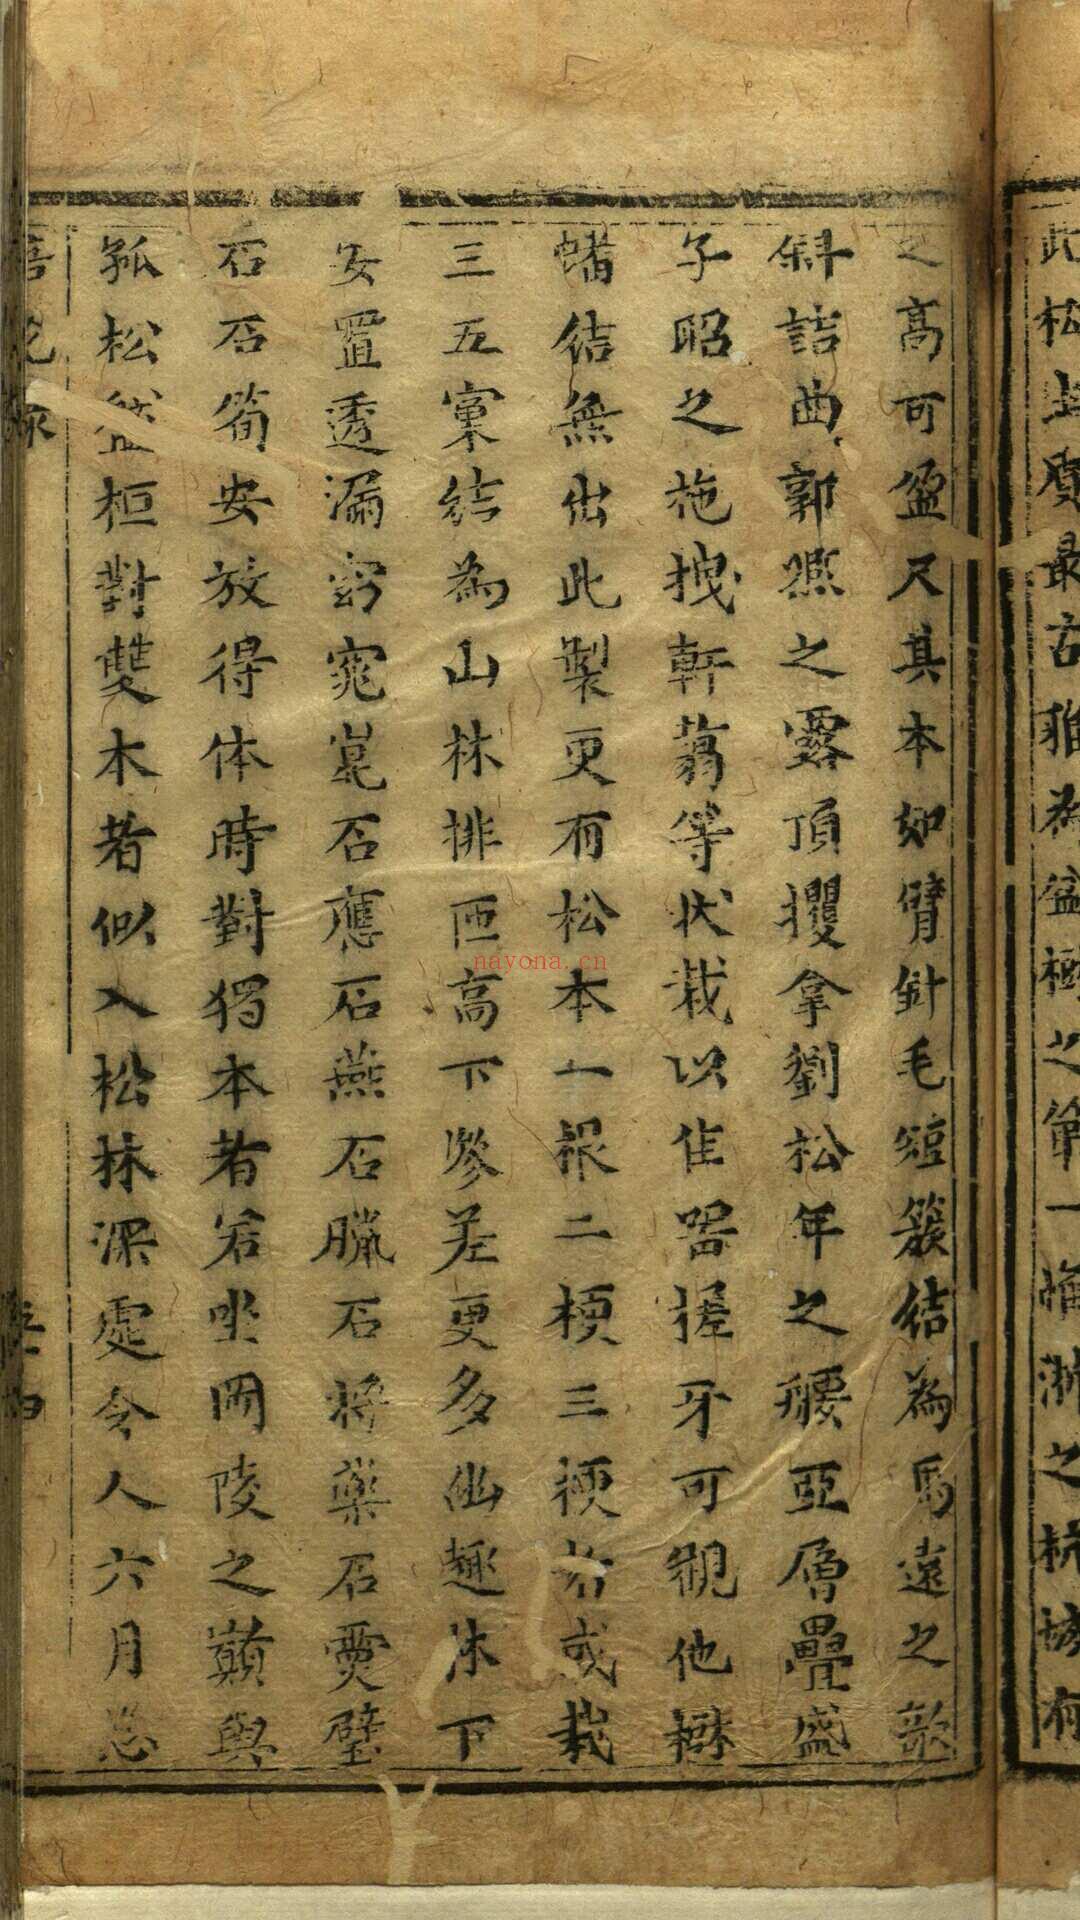 松
最古雅為盆樹之第一惟浙之杭城有
之高可盈尺其本如臂針毛短簇結為馬遠之欹
斜詰曲郭熈之露頂攫拿劉松年之腰亞層疊盛
子昭之拖拽軒翥等狀栽以佳器槎牙可觀他樹
蟠結無出此製更有松本一根二梗三梗者或栽
三五窠結為山林排匝高下參差更多幽趣林下
安置透漏窈窕崑石應石燕石臘石將樂石靈璧
石石筍安放得体時對獨本者若坐岡陵之巔與
孤松盤桓對雙木者似入松林深處令人六月忘
nayona.cn